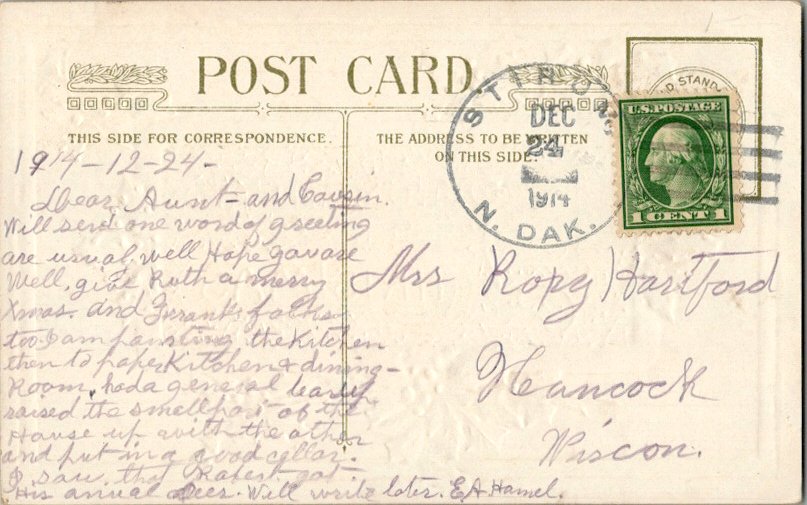 POST CARD
THIS SIDE FOR CORRESPONDENCE.
THE ADDRESS TO BE WRITTEN
ON THIS SIDE.
D STAND
STIRUM
DEC
24
1914
N. DAK.
U.S. POSTAGE
1 CENT 1
1914-12-24-
Dear Aunt and Cousin.
Will send one word of greeting
are usual well Hope you are
Well, give Ruth a merry
Xmas. and Frank folks
too I am painting the Kitchen
then to paper Kitchen & dining-
Room, had a general
raised the small part of the
House up with the other
and put in a good cellar.
I saw that Robert got
His anual Deer. Will write later. E.A. Hamel.
Mrs Hartford
Hancock
Wiscon.